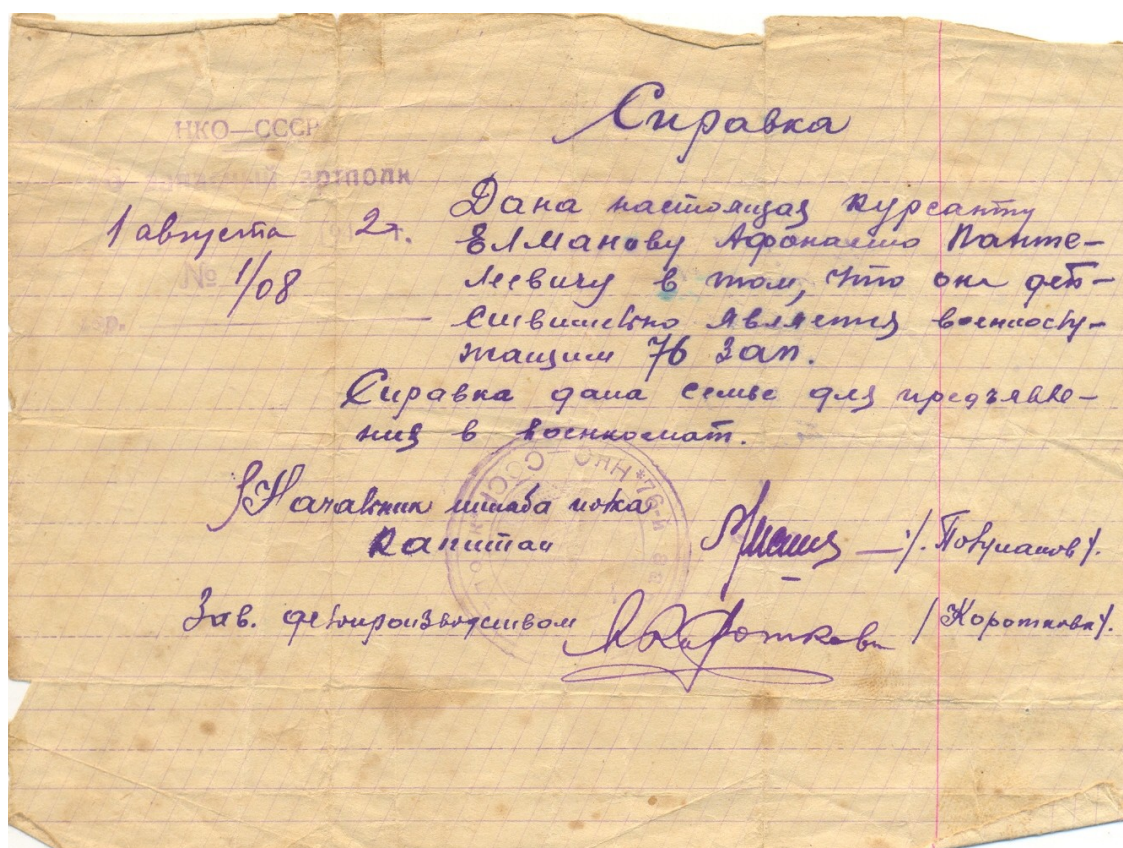 Справка
НКО—СССР
запасный артполк
1 августа 194 2 г.
№ 1/08
Дана настоящая курсанту
Елманову Афонасию Панте-
леевичу в том, что он дей-
ствительно является военнослу-
жащим 76 зап.
Справка дана семье для предъявле-
ния в военкомат.
Начальник штаба полка
Капитан
Зав. делопроизводством
/Короткова/.
НКО—СССР * 76-й